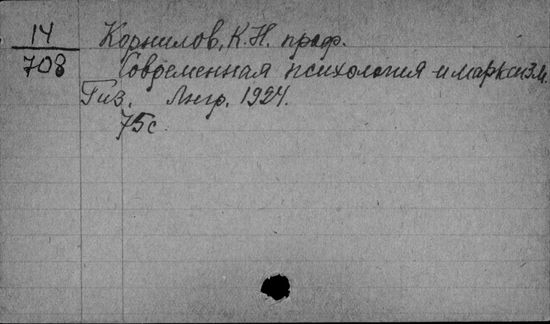 14
708
Корнилов, К.Н. проф.
Современная психология и марксизм.
Гиз. Лнгр. 1924.
75с.